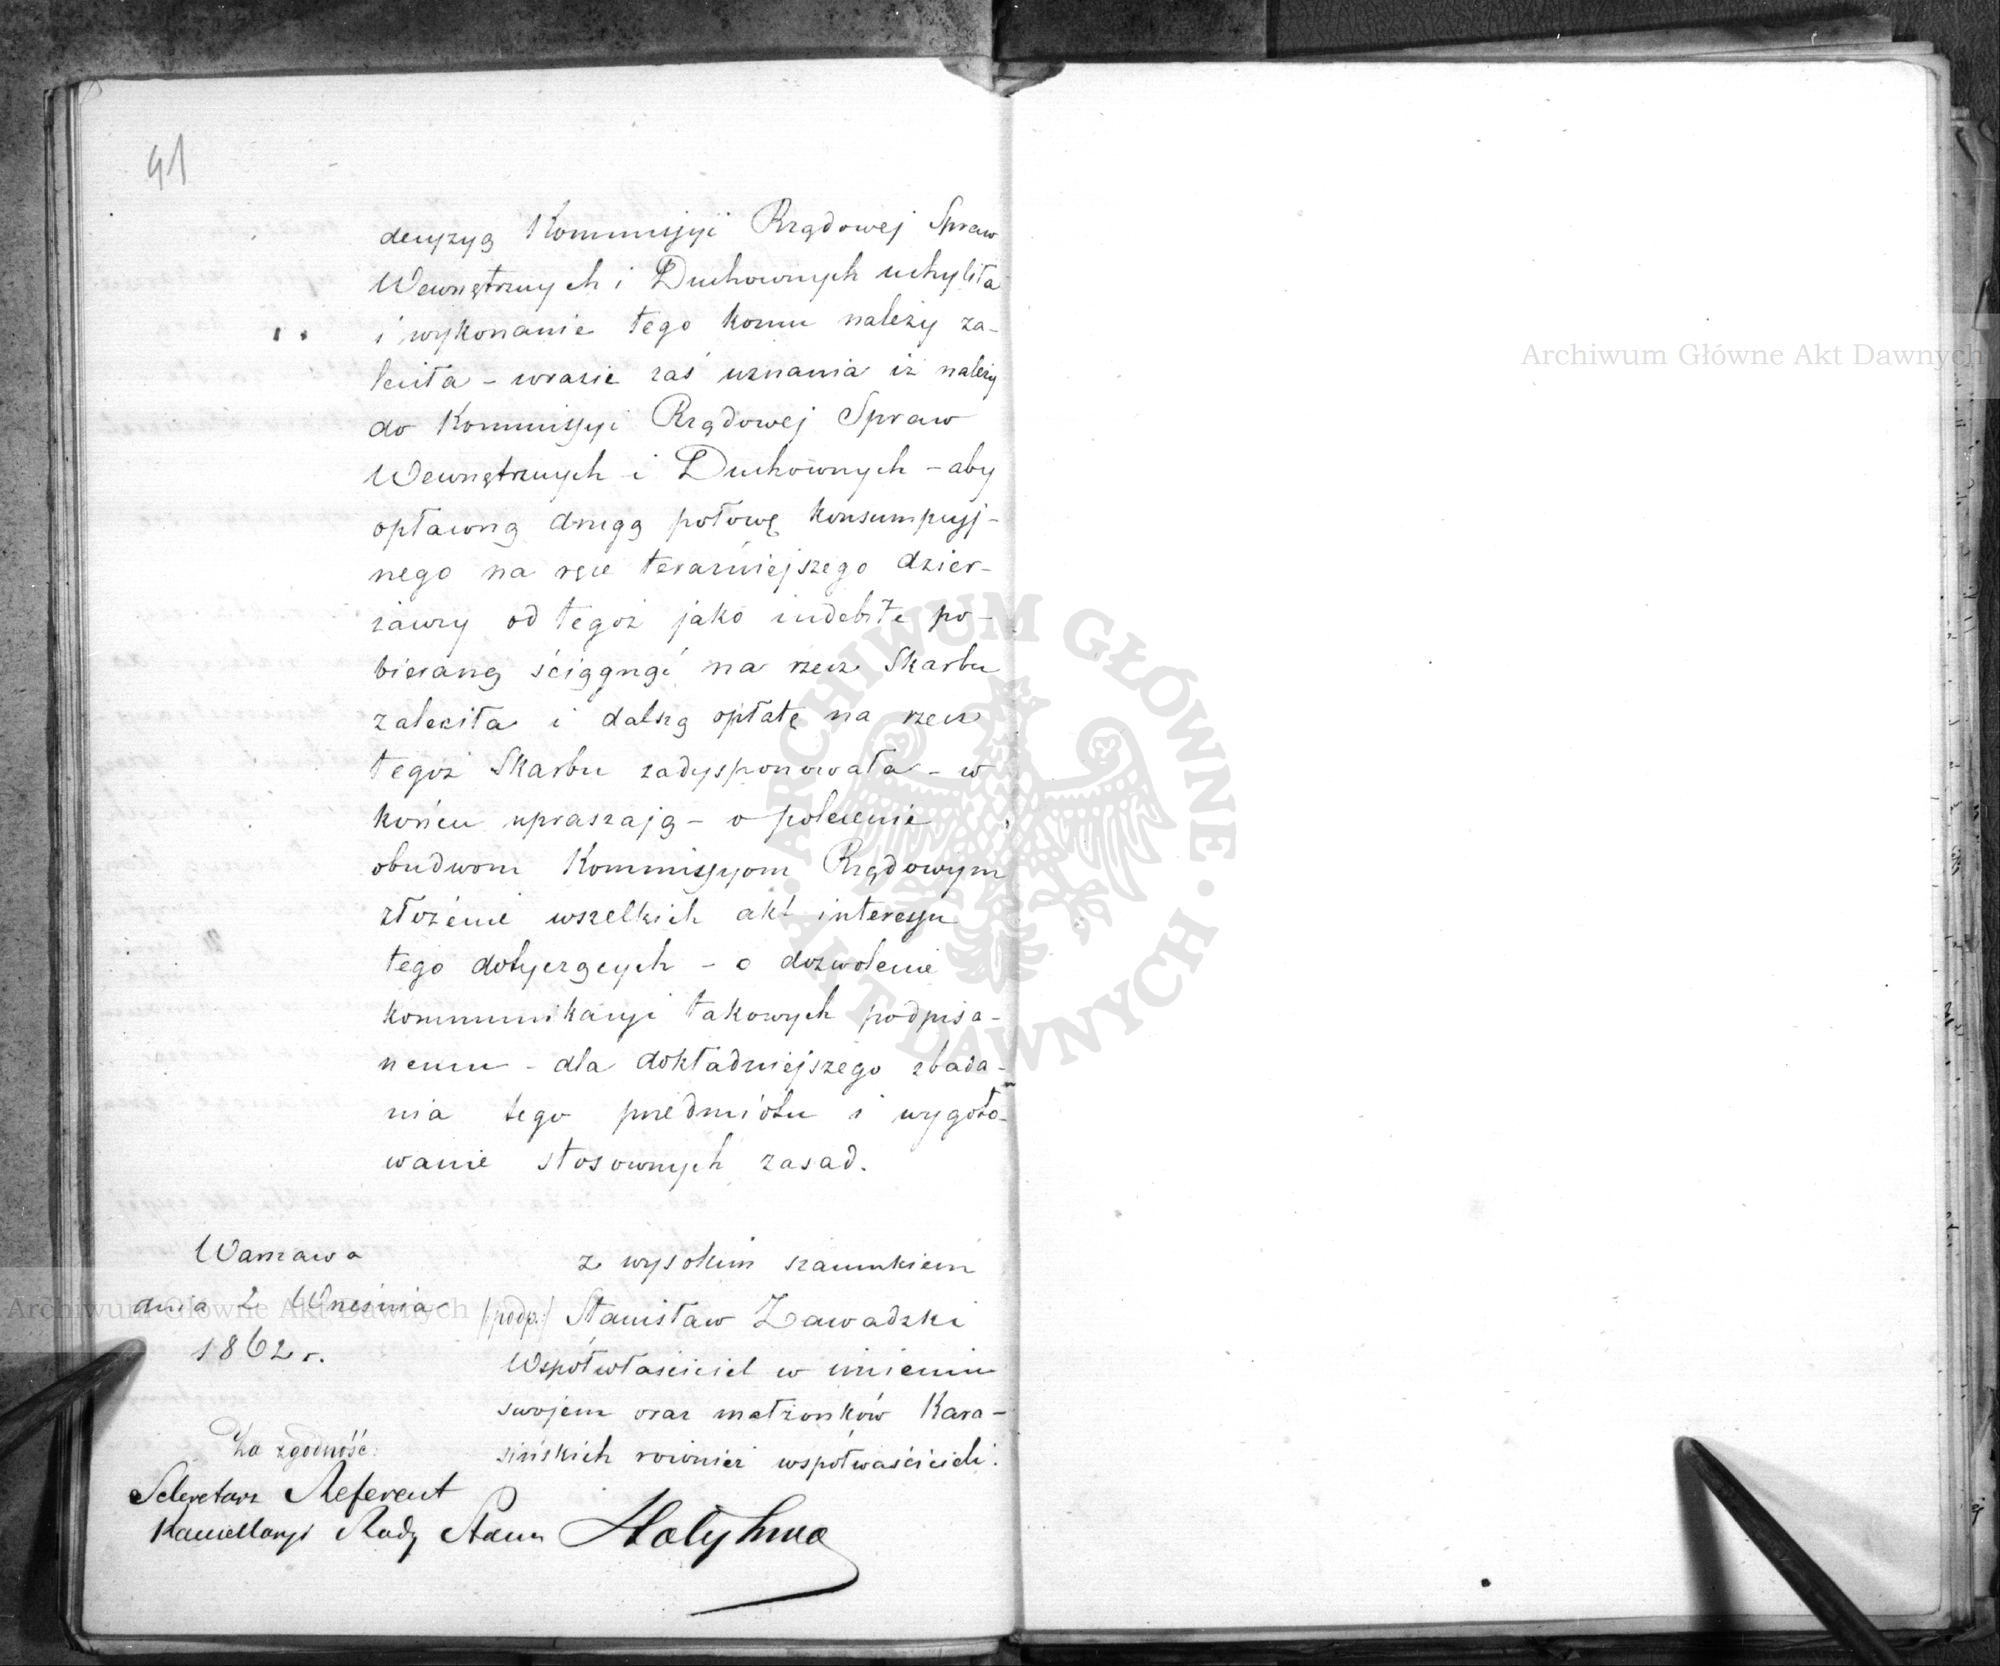 41
decyzyą Kommissyi Rządowej Spraw
Wewnętrznych i Duchownych uchyliła
i wykonanie tego komu należy za-
leciła – wrazie zaś uznania iż należy
do Kommissyi Rządowej Spraw
Wewnętrznych i Duchownych – aby
opłacną drugą połowę konsumpcyj-
nego na ręce teraźniejszego dzier-
żawcy od tegoż jako indebite po-
bieraną ściągnąć na rzecz Skarbu
zaleciła i dalszą opłatę na rzecz
tegoż Skarbu zadysponowała – w
końcu upraszają – o polecenie
obudwom Kommissyom Rządowym
złożenie wszelkich akt interessu
tego dotyczących – o dozwolenie
kommunikacyi takowych podpisa-
nemu – dla dokładniejszego zbada-
nia tego przedmiotu i wygoto-
wanie stosownych zasad.
Warszawa
dnia 2 Września
1862 r.
z wysokim szacunkiem
/podp:/ Stanisław Zawadzki
Współwłaściciel w imieniu
swojem oraz małżonków Kara-
sińskich również współwaścicieli.
Za zgodność:
Sekretarz Referent
Kancellaryi Rady Stanu
Archiwum Główne Akt Dawnych
Archiwum Główne Akt Dawnych
ARCHIWUM GŁÓWNE
AKT DAWNYCH